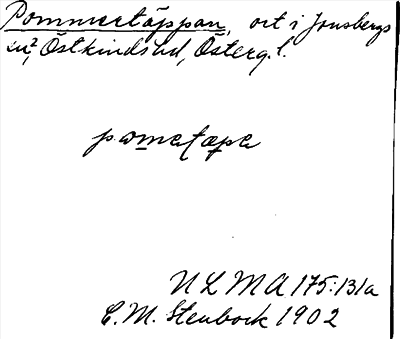 Pommertäppan, ort i Jonsbergs
sn, Östkinds hd, Östergl.
pometapa
ULMA 175:131a
C.M. Stenbock 1902